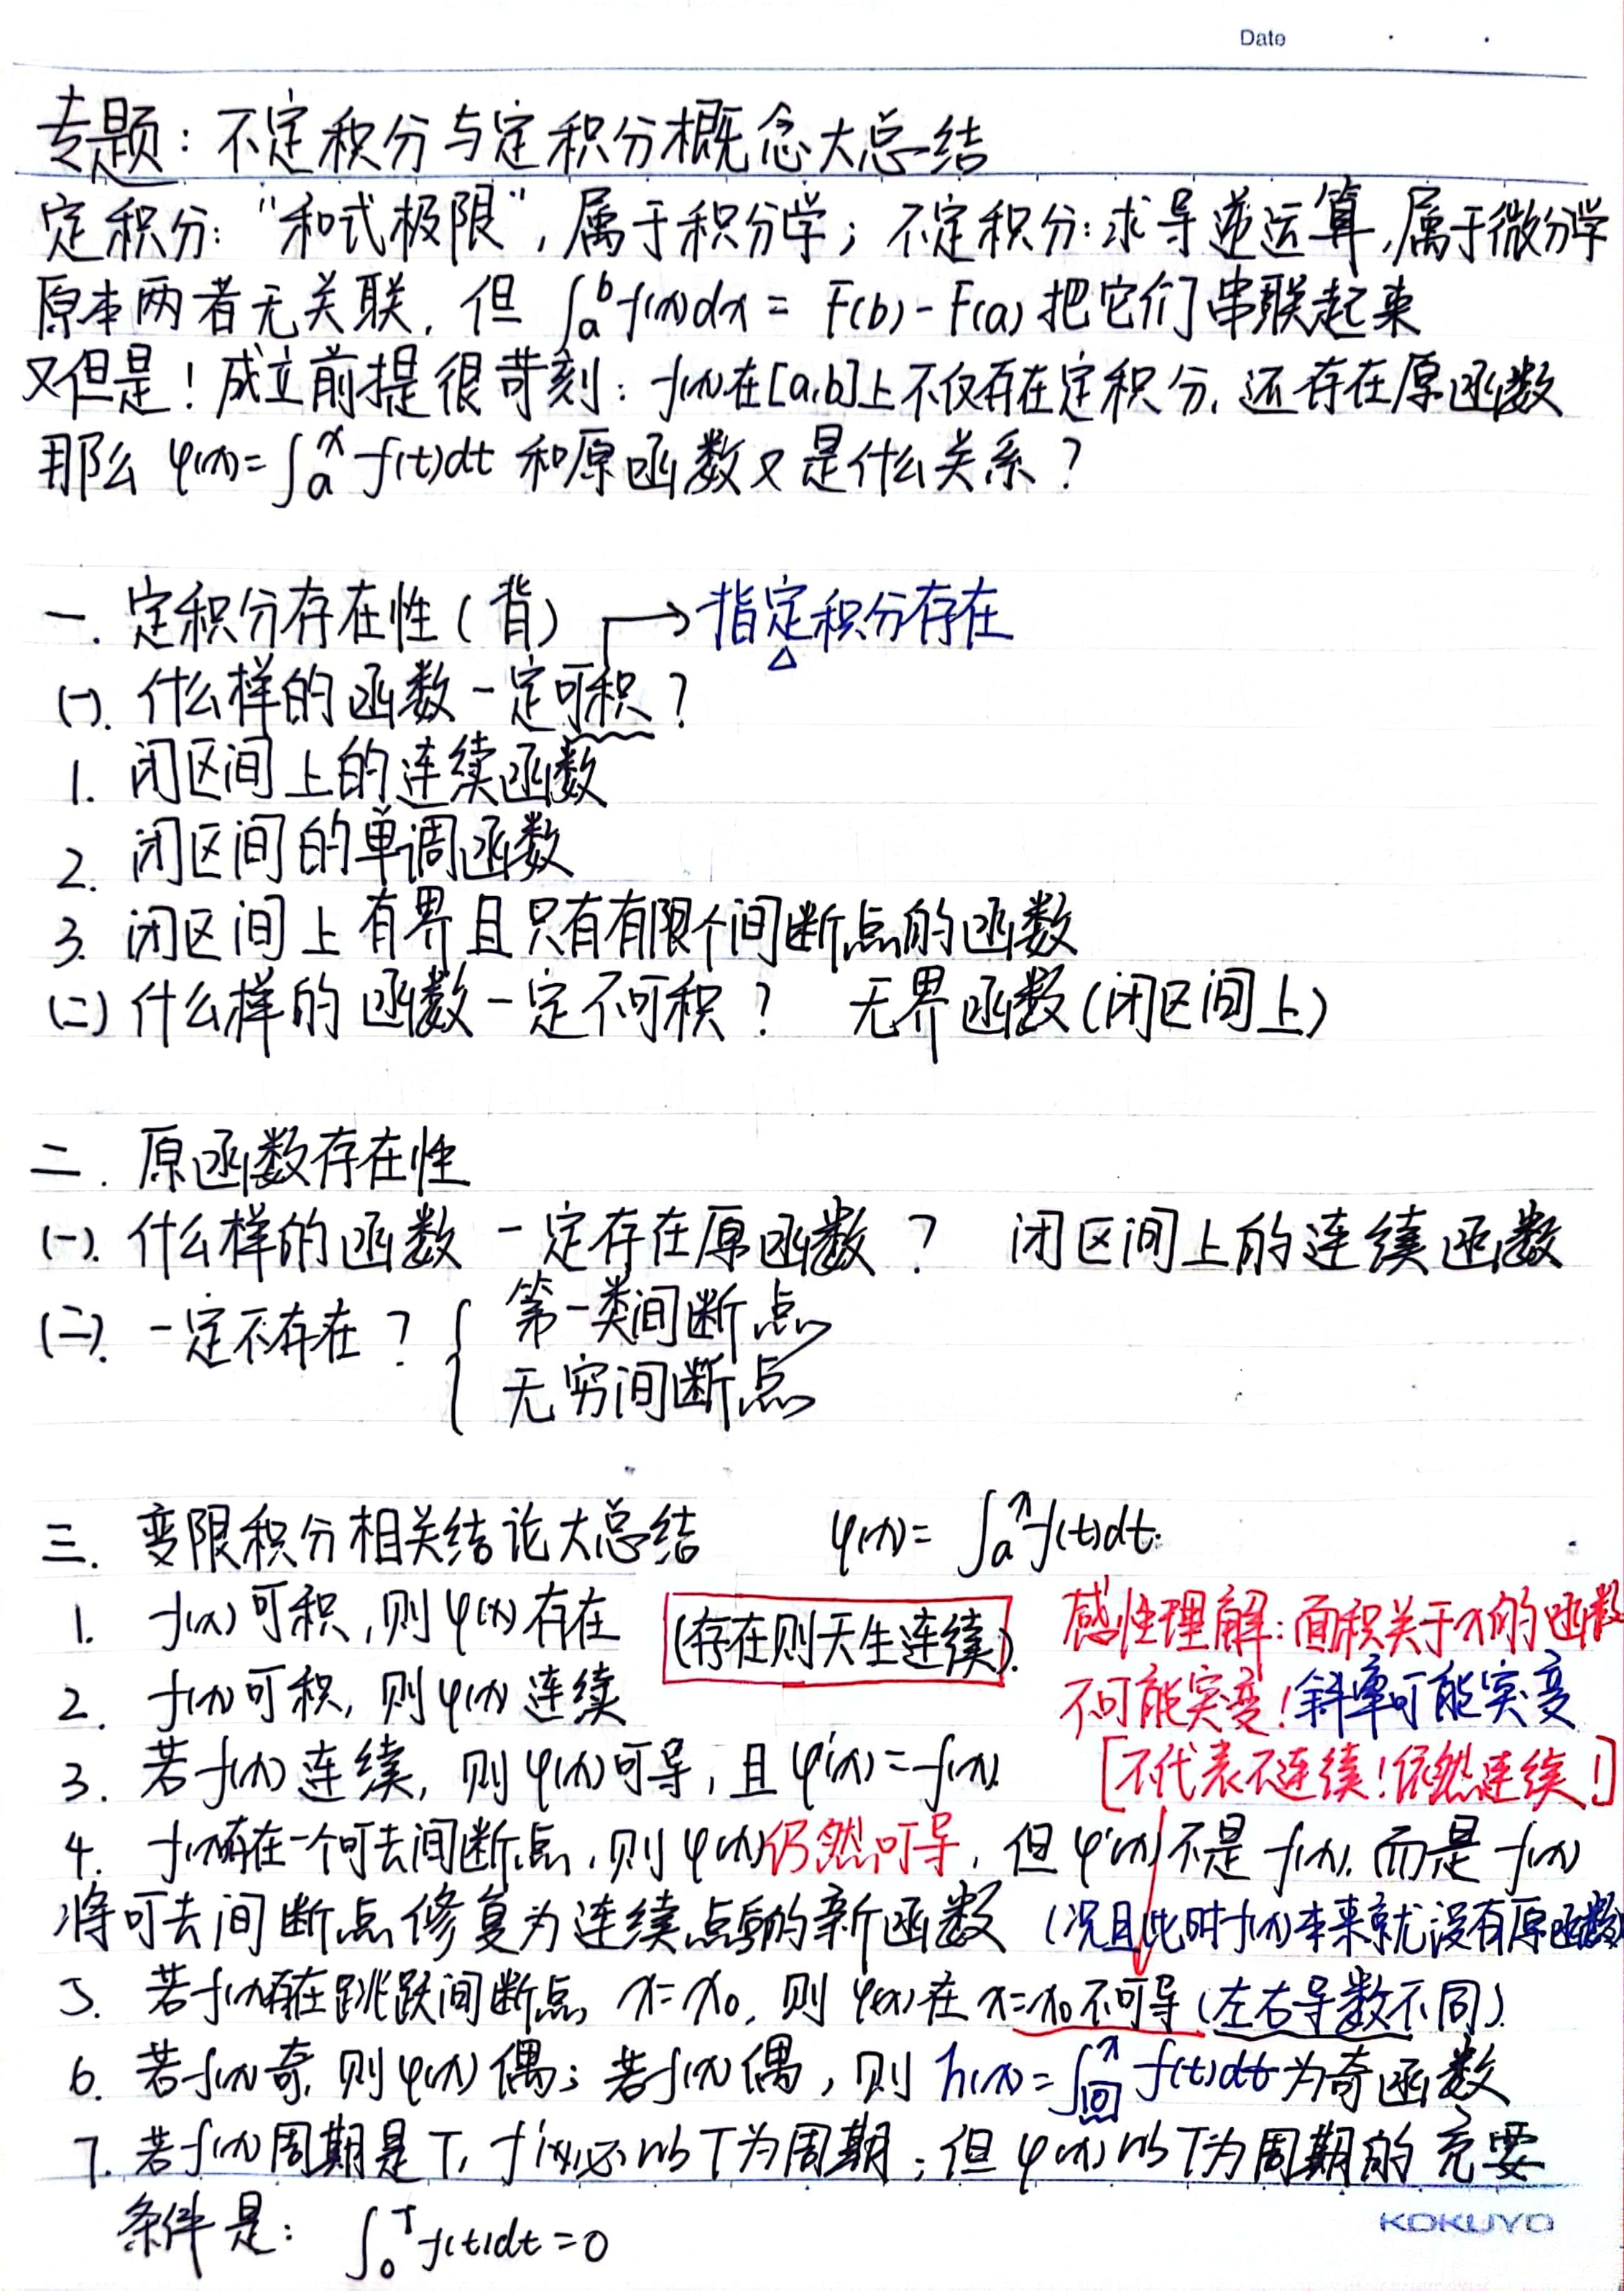 Date
专题：不定积分与定积分概念大总结
定积分："和式极限"，属于积分学；不定积分：求导逆运算，属于微分学
原本两者无关联，但 ∫ₐᵇ f(x)dx = F(b)-F(a) 把它们串联起来
又但是！成立前提很苛刻：f(x)在[a,b]上不仅存在定积分，还存在原函数
那么 φ(x)=∫ₐˣ f(t)dt 和原函数又是什么关系？
一. 定积分存在性（背） → 指定积分存在
(一). 什么样的函数一定可积？
1. 闭区间上的连续函数
2. 闭区间的单调函数
3. 闭区间上有界且只有有限个间断点的函数
(二) 什么样的函数一定不可积？ 无界函数(闭区间上)
二. 原函数存在性
(一). 什么样的函数一定存在原函数？ 闭区间上的连续函数
(二). 一定不存在？ { 第一类间断点
无穷间断点
三. 变限积分相关结论大总结 φ(x)= ∫ₐˣ f(t)dt.
1. f(x)可积，则φ(x)存在 (存在则天生连续). 感性理解：面积关于x的函数
2. f(x)可积，则φ(x)连续 不可能突变！斜率可能突变
3. 若f(x)连续，则φ(x)可导，且φ'(x)=f(x). [不代表不连续！依然连续！]
4. f(x)存在一个可去间断点，则φ(x)仍然可导，但φ'(x)不是f(x)，而是f(x)
将可去间断点修复为连续点后的新函数 (况且此时f(x)本来就没有原函数)
5. 若f(x)存在跳跃间断点 x=x₀，则φ(x)在x=x₀不可导(左右导数不同).
6. 若f(x)奇，则φ(x)偶；若f(x)偶，则h(x)=∫₀ˣ f(t)dt为奇函数
7. 若f(x)周期是T，f'(x)必以T为周期；但φ(x)以T为周期的充要
条件是： ∫₀ᵀ f(t)dt=0
KOKUYO